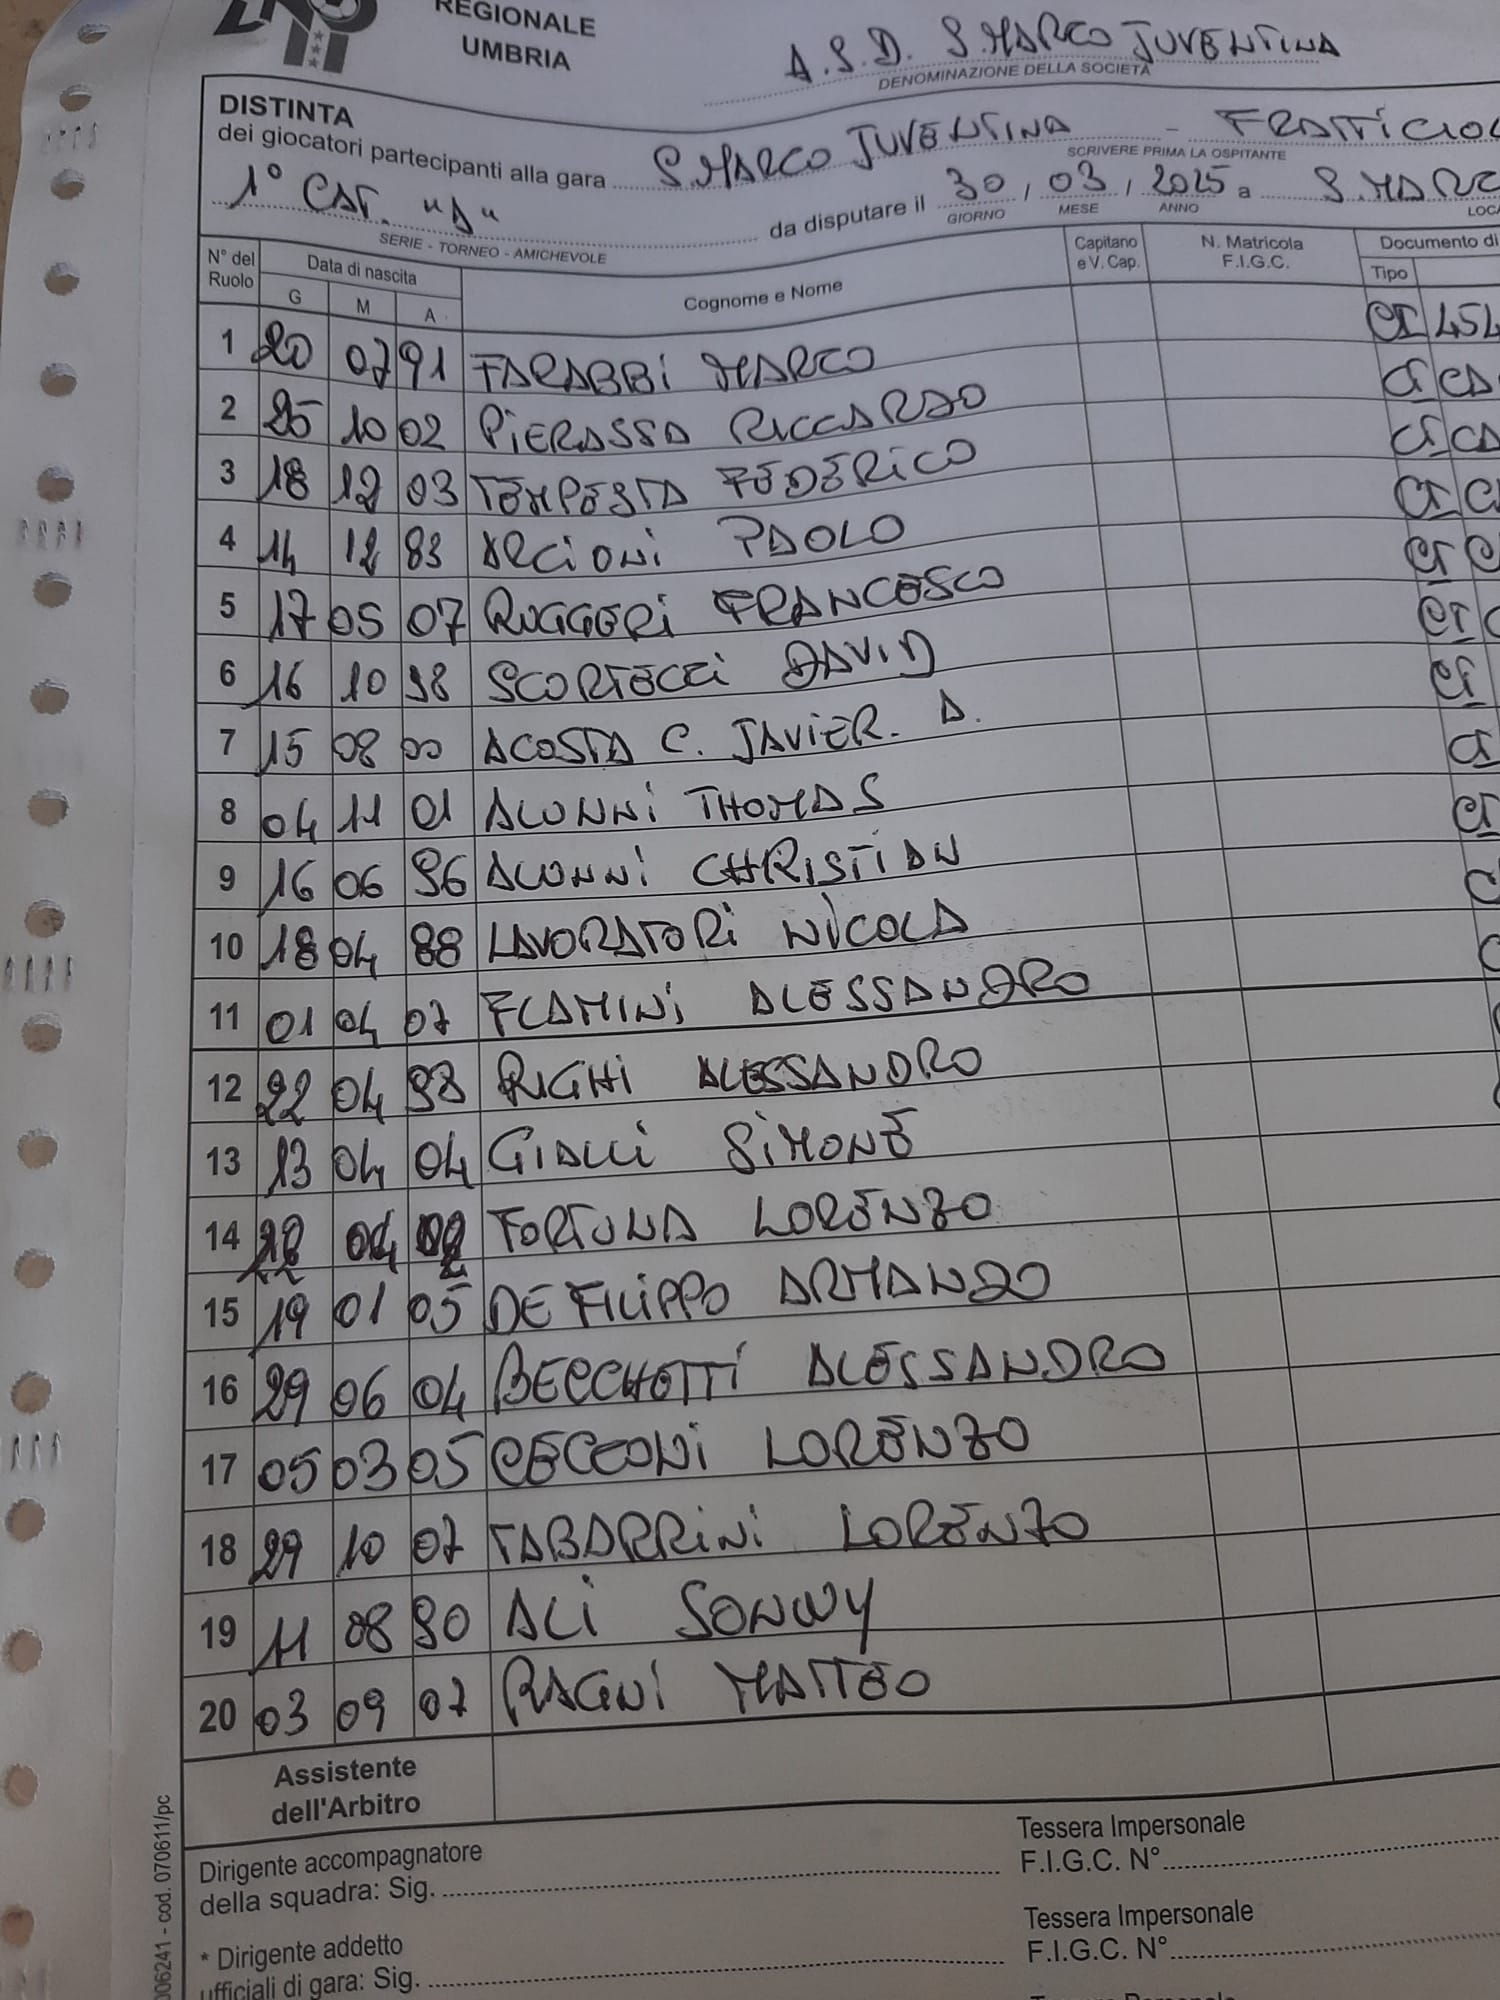 REGIONALE
UMBRIA
A.S.D. S.MARCO JUVENTINA
DENOMINAZIONE DELLA SOCIETÀ
DISTINTA
dei giocatori partecipanti alla gara S.MARCO JUVENTINA - FRATTICIOL
SCRIVERE PRIMA LA OSPITANTE
1° CAT. "A" da disputare il 30 / 03 / 2025 a S.MARC
SERIE - TORNEO - AMICHEVOLE GIORNO MESE ANNO LOCA
N° del Ruolo Data di nascita Cognome e Nome Capitano e V. Cap. N. Matricola F.I.G.C. Documento di
G M A Tipo
1 20 07 91 FARABBI MARCO CI 454
2 25 10 02 PIERASSA RICCARDO CI CA
3 18 12 03 TEMPESTA FEDERICO CI CA
4 14 12 83 ARCIONI PAOLO CI C
5 17 05 07 RUGGERI FRANCESCO CI
6 16 10 98 SCORTECCI DAVID CI
7 15 08 00 ACOSTA C. JAVIER. A. CI
8 04 11 01 ALUNNI THOMAS CI
9 16 06 96 ALUNNI CHRISTIAN CI
10 18 04 88 LAVORATORI NICOLA
11 01 04 07 FLAMINI ALESSANDRO
12 22 04 98 RIGHI ALESSANDRO
13 13 04 04 GIALLI SIMONE
14 22 04 02 FORTUNA LORENZO
15 19 01 05 DE FILIPPO ARMANDO
16 29 06 04 BECCHETTI ALESSANDRO
17 05 03 05 CECCONI LORENZO
18 29 10 07 TABARRINI LORENZO
19 11 08 90 ALI SONNY
20 03 09 07 RAGNI MATTEO
Assistente
dell'Arbitro
Dirigente accompagnatore Tessera Impersonale
della squadra: Sig. F.I.G.C. N°
* Dirigente addetto Tessera Impersonale
ufficiali di gara: Sig. F.I.G.C. N°
006241 - cod. 070611/pc